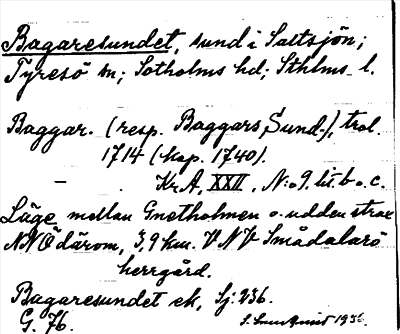 Bagaresundet, sund i Saltsjön;
Tyresö sn; Sotholms hd; Sthlms l.
Baggar. (resp. Baggars Sund.), trol.
1714 (kop. 1740).
— KrA, XXII, N:o 9. lit. b o. c.
Läge mellan Gnetholmen o. udden strax
NNÖ därom, 3,9 km. VNV Smådalarö
herrgård.
Bagaresundet ek, Sj: 236.
G. 76. 1936.